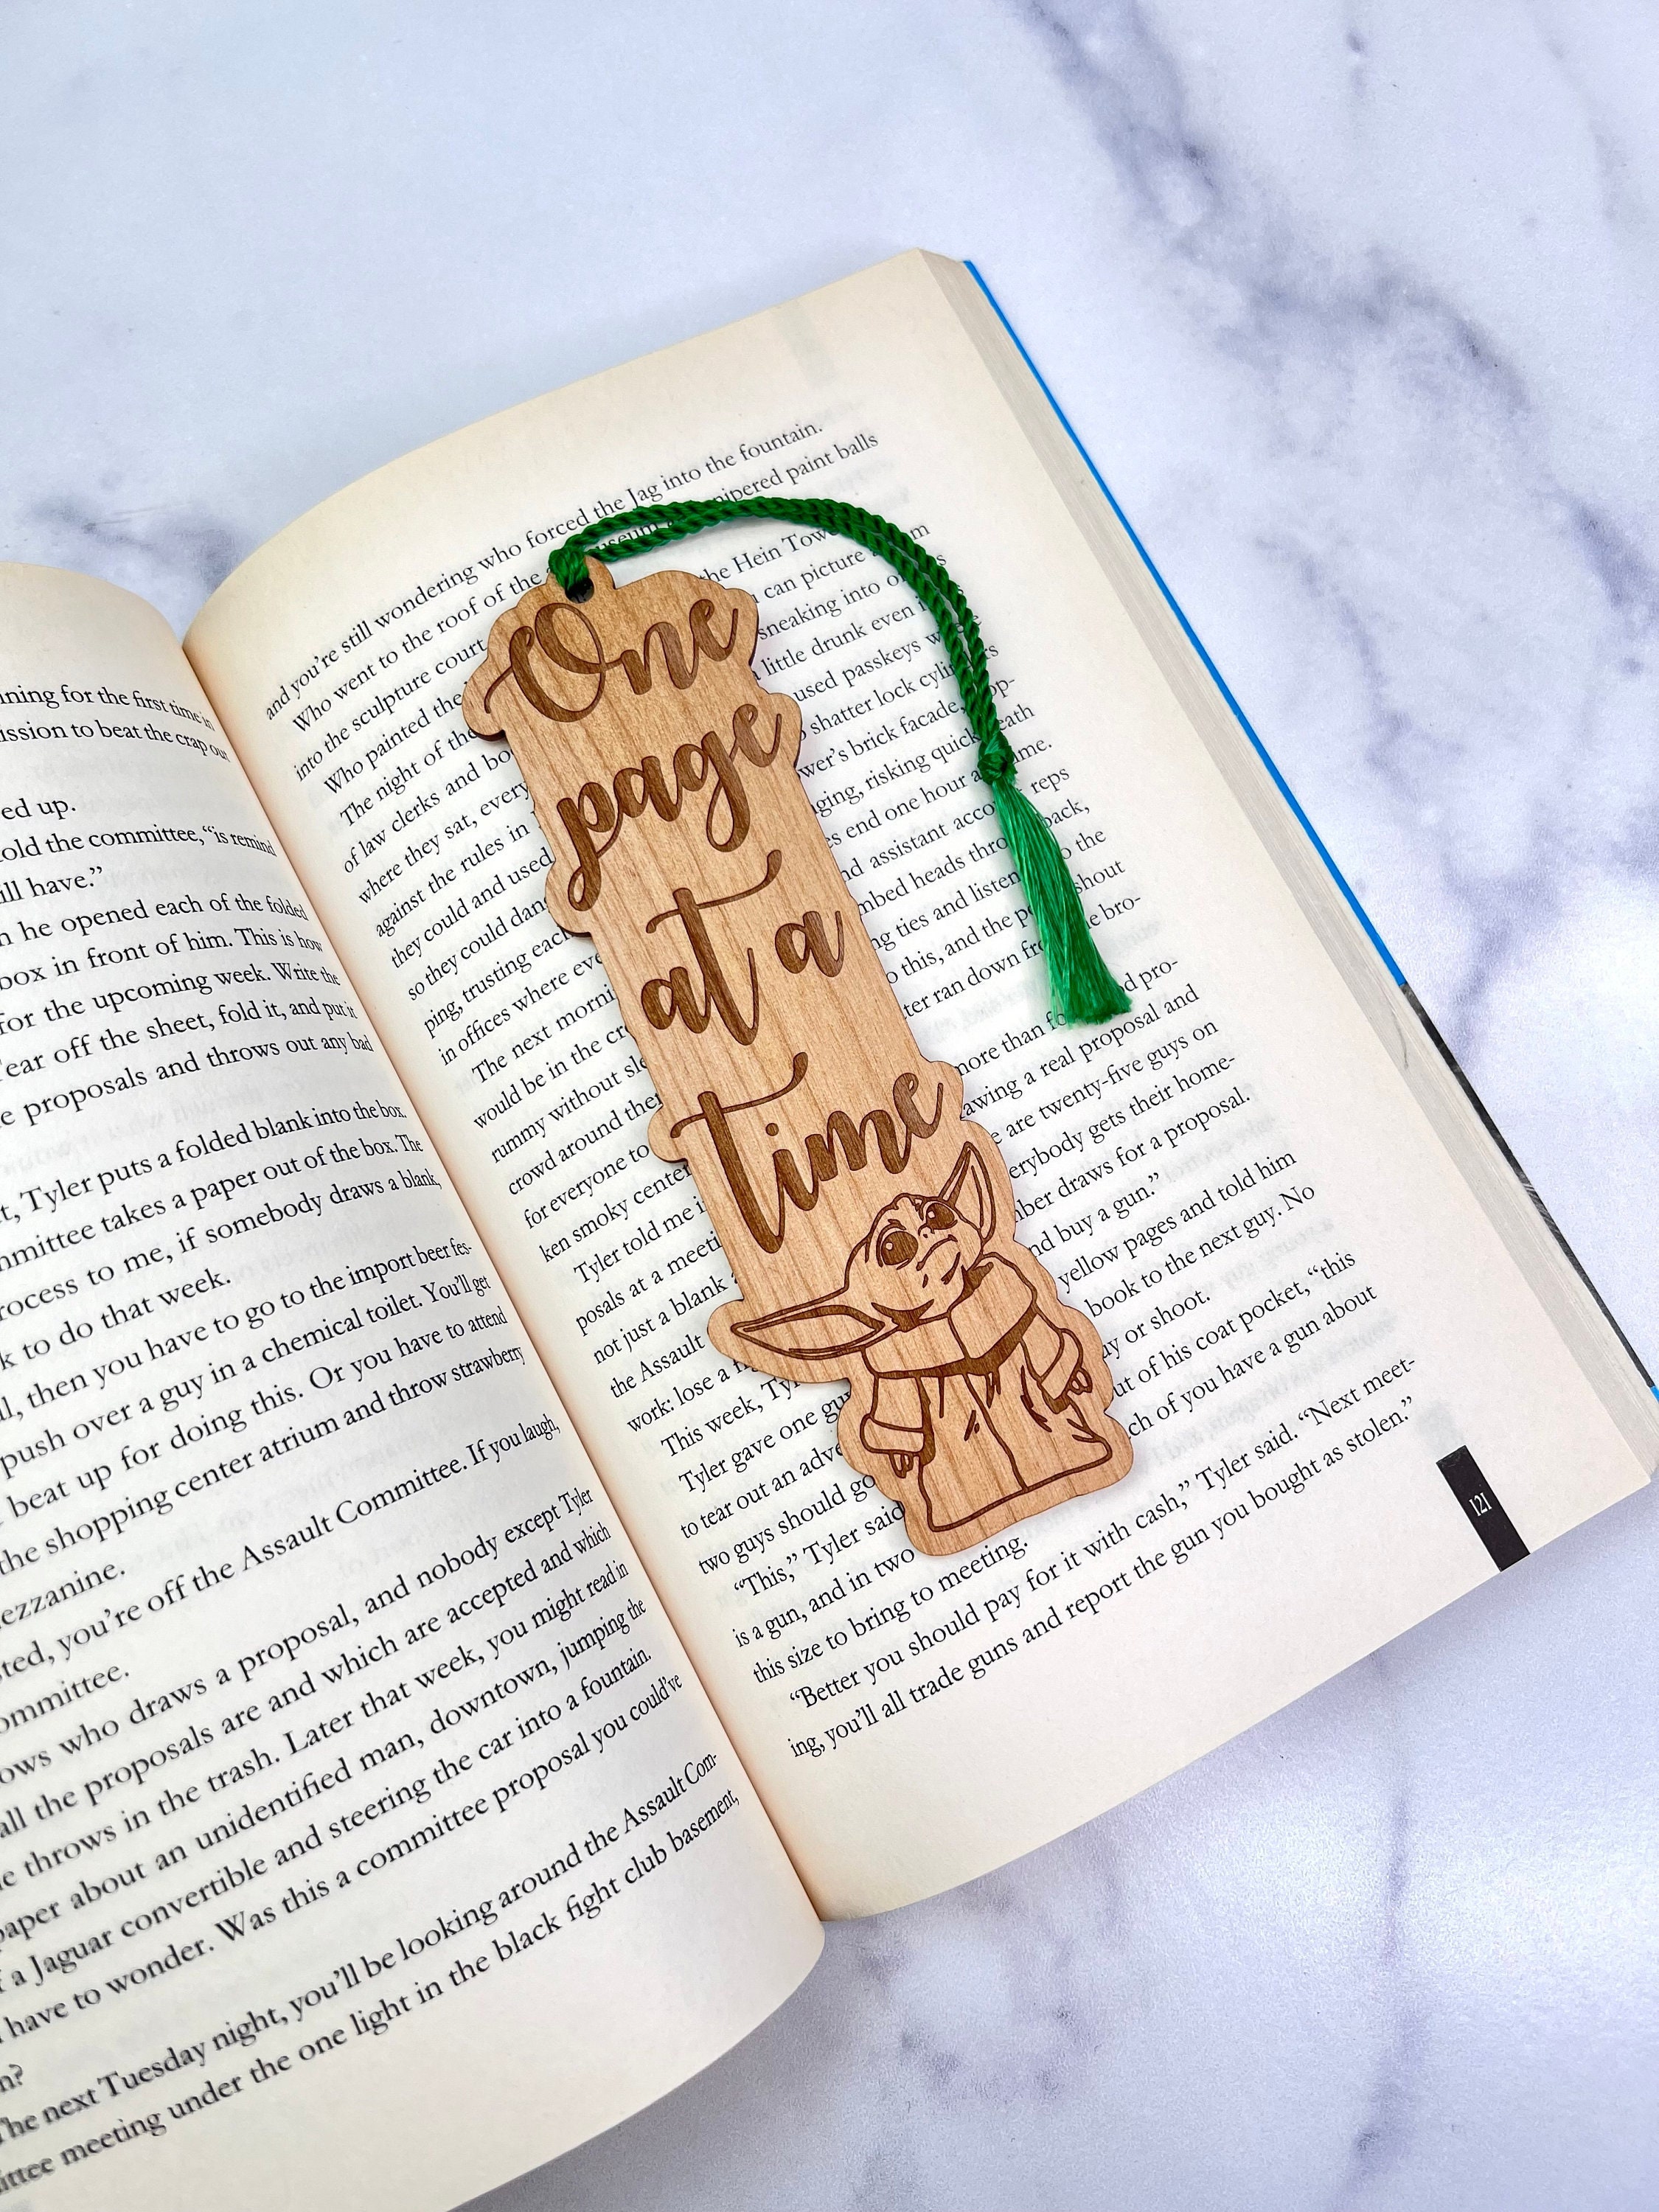 ning for the first time in
ission to beat the crap out
ed up.
told the committee, “is remind
ill have.”
n he opened each of the folded
box in front of him. This is how
for the upcoming week. Write the
Tear off the sheet, fold it, and put it
e proposals and throws out any bad
t, Tyler puts a folded blank into the box.
mmittee takes a paper out of the box. The
rocess to me, if somebody draws a blank,
k to do that week.
l, then you have to go to the import beer fes-
push over a guy in a chemical toilet. You’ll get
beat up for doing this. Or you have to attend
the shopping center atrium and throw strawberry
ezzanine.
sted, you’re off the Assault Committee. If you laugh,
ommittee.
ows who draws a proposal, and nobody except Tyler
all the proposals are and which are accepted and which
e throws in the trash. Later that week, you might read in
paper about an unidentified man, downtown, jumping the
f a Jaguar convertible and steering the car into a fountain.
have to wonder. Was this a committee proposal you could’ve
n?
The next Tuesday night, you’ll be looking around the Assault Com-
ittee meeting under the one light in the black fight club basement,
and you’re still wondering who forced the Jag into the fountain.
Who went to the roof of the useum nipered paint balls
into the sculpture court
Who painted the the Hein Tow
The night of the can picture m
of law clerks and bo sneaking into o s
where they sat, every little drunk even i
against the rules in used passkeys w
they could and used shatter lock cylinders
so they could dan wer’s brick facade, op-
ping, trusting each ging, risking quick eath
in offices where eve es end one hour a ime.
The next morni nd assistant account reps
would be in the cr mbed heads thro back,
rummy without sle ng ties and listen to the
crowd around the o this, and the p shout
for everyone to ter ran down fr e bro-
ken smoky center
Tyler told me i d pro-
posals at a meeti more than fo
not just a blank awing a real proposal and
the Assault e are twenty-five guys on
work: lose a fi erybody gets their home-
This week, Tyl mber draws for a proposal.
Tyler gave one gu nd buy a gun.”
to tear out an adve yellow pages and told him
two guys should go book to the next guy. No
“This,” Tyler said uy or shoot.
is a gun, and in two ut of his coat pocket, “this
this size to bring to meeting. ch of you have a gun about
“Better you should pay for it with cash,” Tyler said. “Next meet-
ing, you’ll all trade guns and report the gun you bought as stolen.”
121
One
page
at a
time